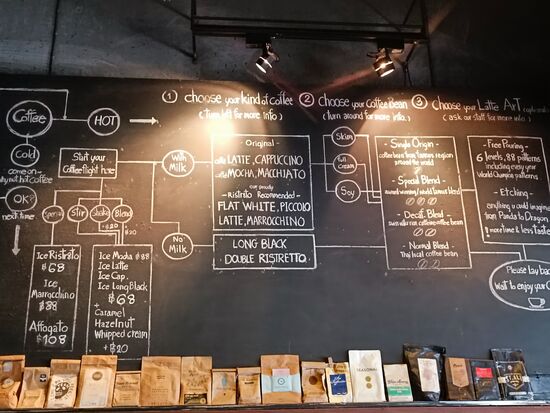 ① choose your kind of Coffee
(turn left for more info)
② choose your Coffee Bean
(turn around for more info)
③ choose your Latte Art
(ask our staff for more info)
Coffee
HOT
Cold
come on-
why not hot coffee
OK?
next time
Start your
Coffee flight here
Special
Stir
Shake
Blend
+฿20
Ice Ristretto
฿68
Ice
Marrocchino
฿88
Affogato
฿108
Ice Mocha ฿88
Ice Latte
Ice Cap.
Ice Long Black
฿68
+
Caramel
Hazelnut
Whipped cream
+฿20
With
Milk
No
Milk
- Original -
caffe LATTE, CAPPUCCINO
caffe MOCHA, MACCHIATO
- Ristretto Recommended -
FLAT WHITE, PICCOLO
LATTE, MARROCCHINO
LONG BLACK
DOUBLE RISTRETTO
Skim
Full
Cream
Soy
Single Origin
coffee bean from famous region
around the world
- Special Blend -
award winning/world famous blend
- Decaf. Blend -
- Normal Blend -
Thai local coffee bean
- Free Pouring -
6 levels, 88 patterns
including every year
World Champion patterns
- Etching -
everything u could imagine
from Panda to Dragon
Please lay back
Wait to enjoy your